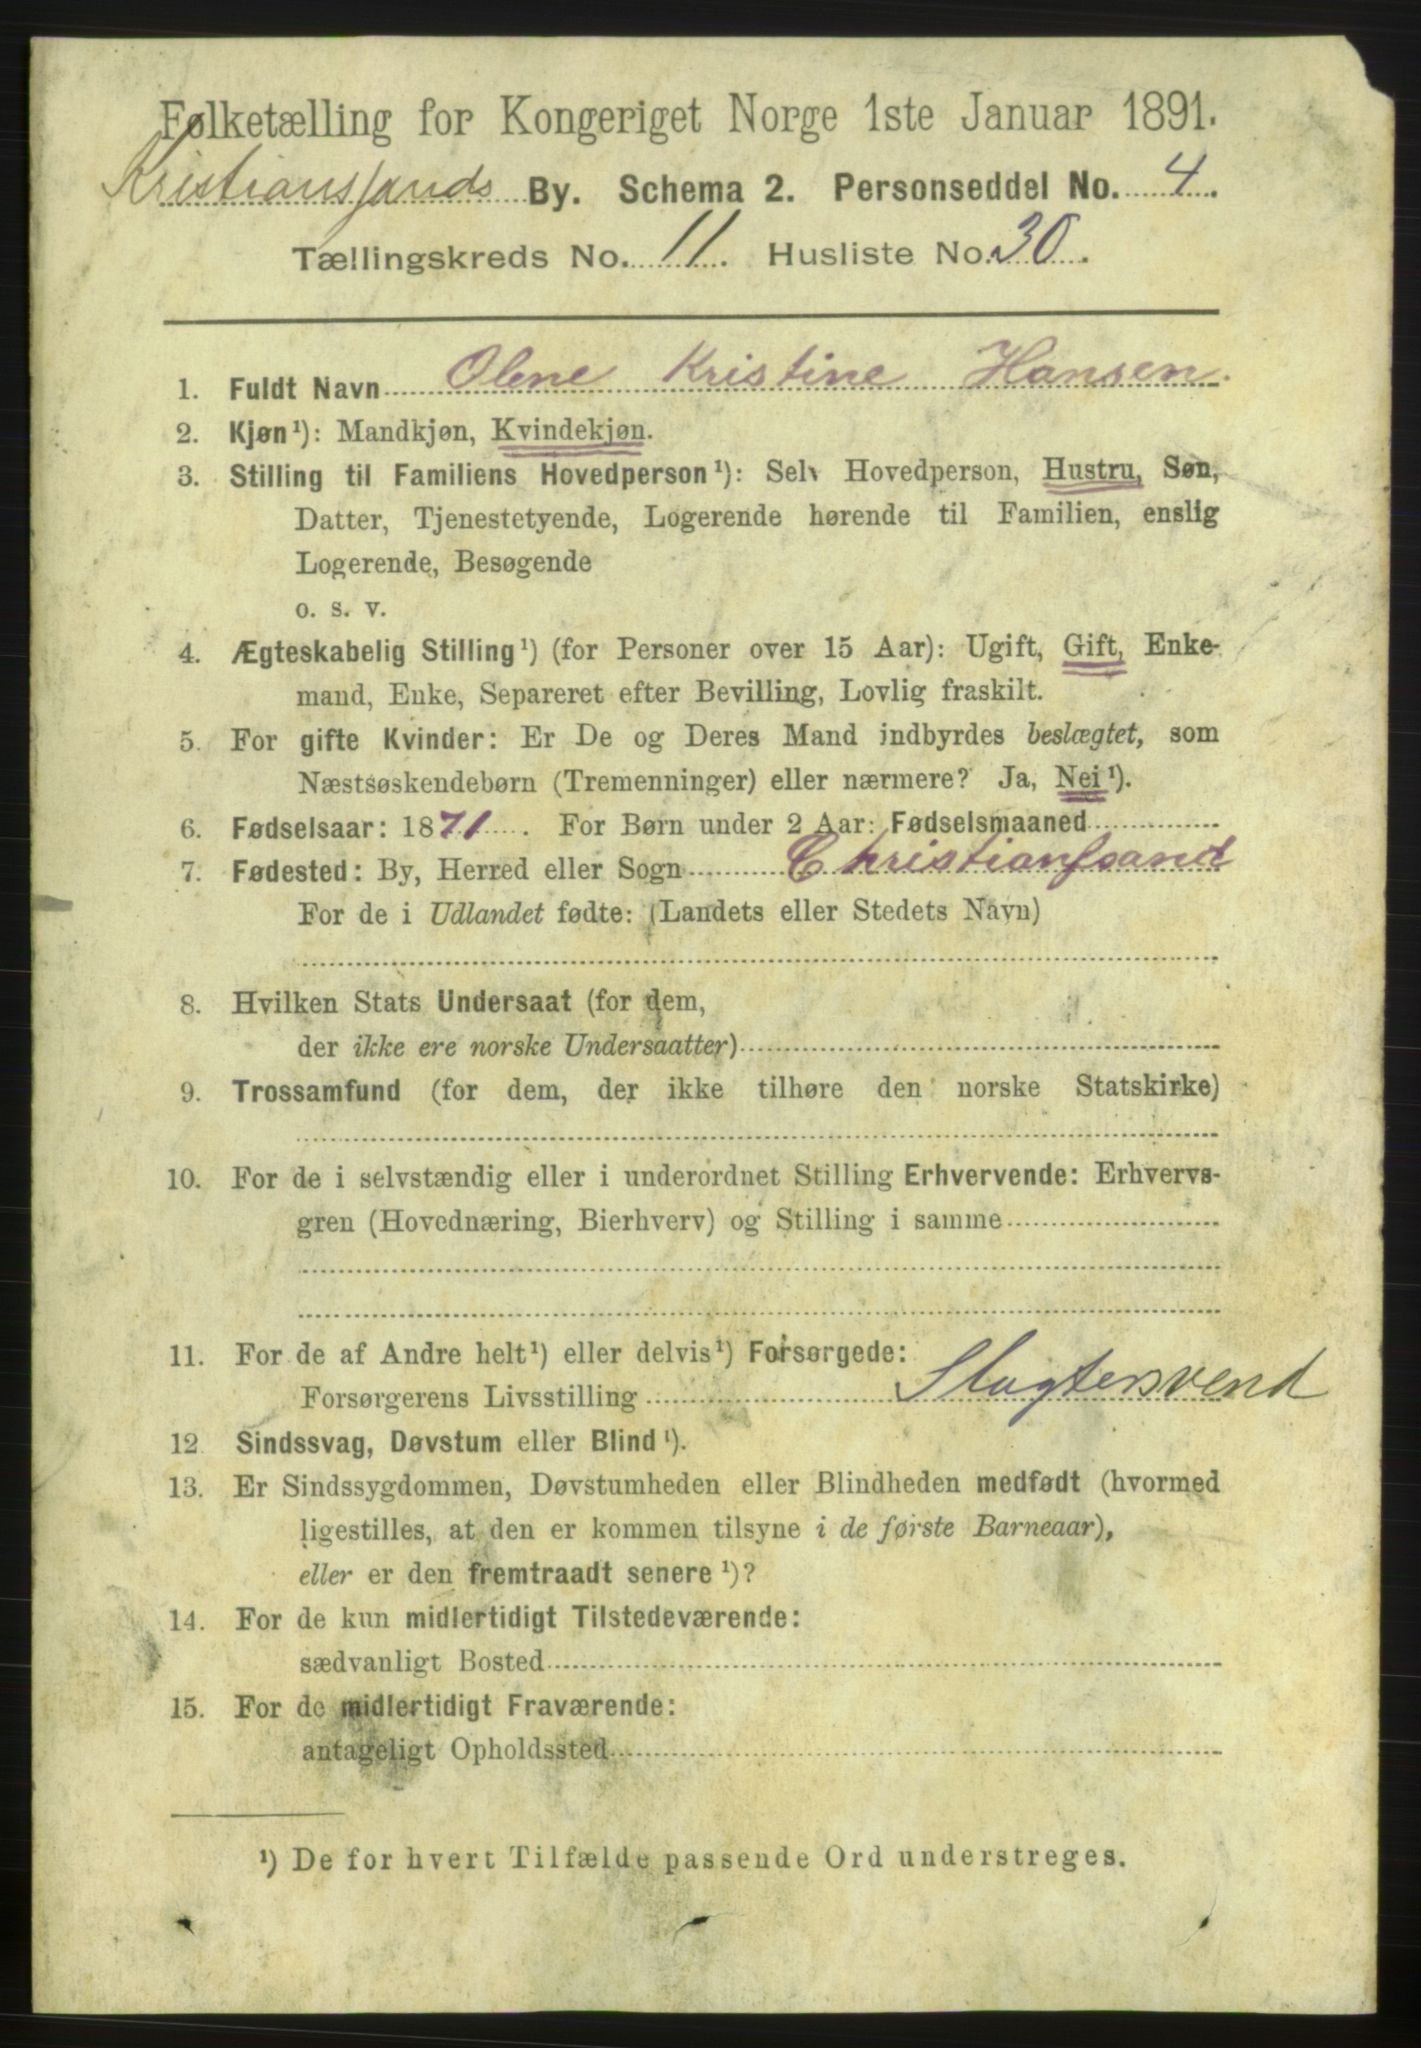 Folketælling for Kongeriget Norge 1ste Januar 1891.
Kristianssands By. Schema 2. Personseddel No. 4.
Tællingskreds No. 11. Husliste No. 30.
1. Fuldt Navn Olene Kristine Hansen.
2. Kjøn¹): Mandkjøn, Kvindekjøn.
3. Stilling til Familiens Hovedperson¹): Selv Hovedperson, Hustru, Søn,
Datter, Tjenestetyende, Logerende hørende til Familien, enslig
Logerende, Besøgende
o. s. v.
4. Ægteskabelig Stilling¹) (for Personer over 15 Aar): Ugift, Gift, Enke-
mand, Enke, Separeret efter Bevilling, Lovlig fraskilt.
5. For gifte Kvinder: Er De og Deres Mand indbyrdes beslægtet, som
Næstsøskendebørn (Tremenninger) eller nærmere? Ja, Nei¹).
6. Fødselsaar: 1871. For Børn under 2 Aar: Fødselsmaaned
7. Fødested: By, Herred eller Sogn Christianssand
For de i Udlandet fødte: (Landets eller Stedets Navn)
8. Hvilken Stats Undersaat (for dem,
der ikke ere norske Undersaatter)
9. Trossamfund (for dem, der ikke tilhøre den norske Statskirke)
10. For de i selvstændig eller i underordnet Stilling Erhvervende: Erhvervs-
gren (Hovednæring, Bierhverv) og Stilling i samme
11. For de af Andre helt¹) eller delvis¹) Forsørgede:
Forsørgerens Livsstilling Slagtersvend
12 Sindssvag, Døvstum eller Blind¹).
13. Er Sindssygdommen, Døvstumheden eller Blindheden medfødt (hvormed
ligestilles, at den er kommen tilsyne i de første Barneaar),
eller er den fremtraadt senere¹)?
14. For de kun midlertidigt Tilstedeværende:
sædvanligt Bosted
15. For de midlertidigt Fraværende:
antageligt Opholdssted
¹) De for hvert Tilfælde passende Ord understreges.